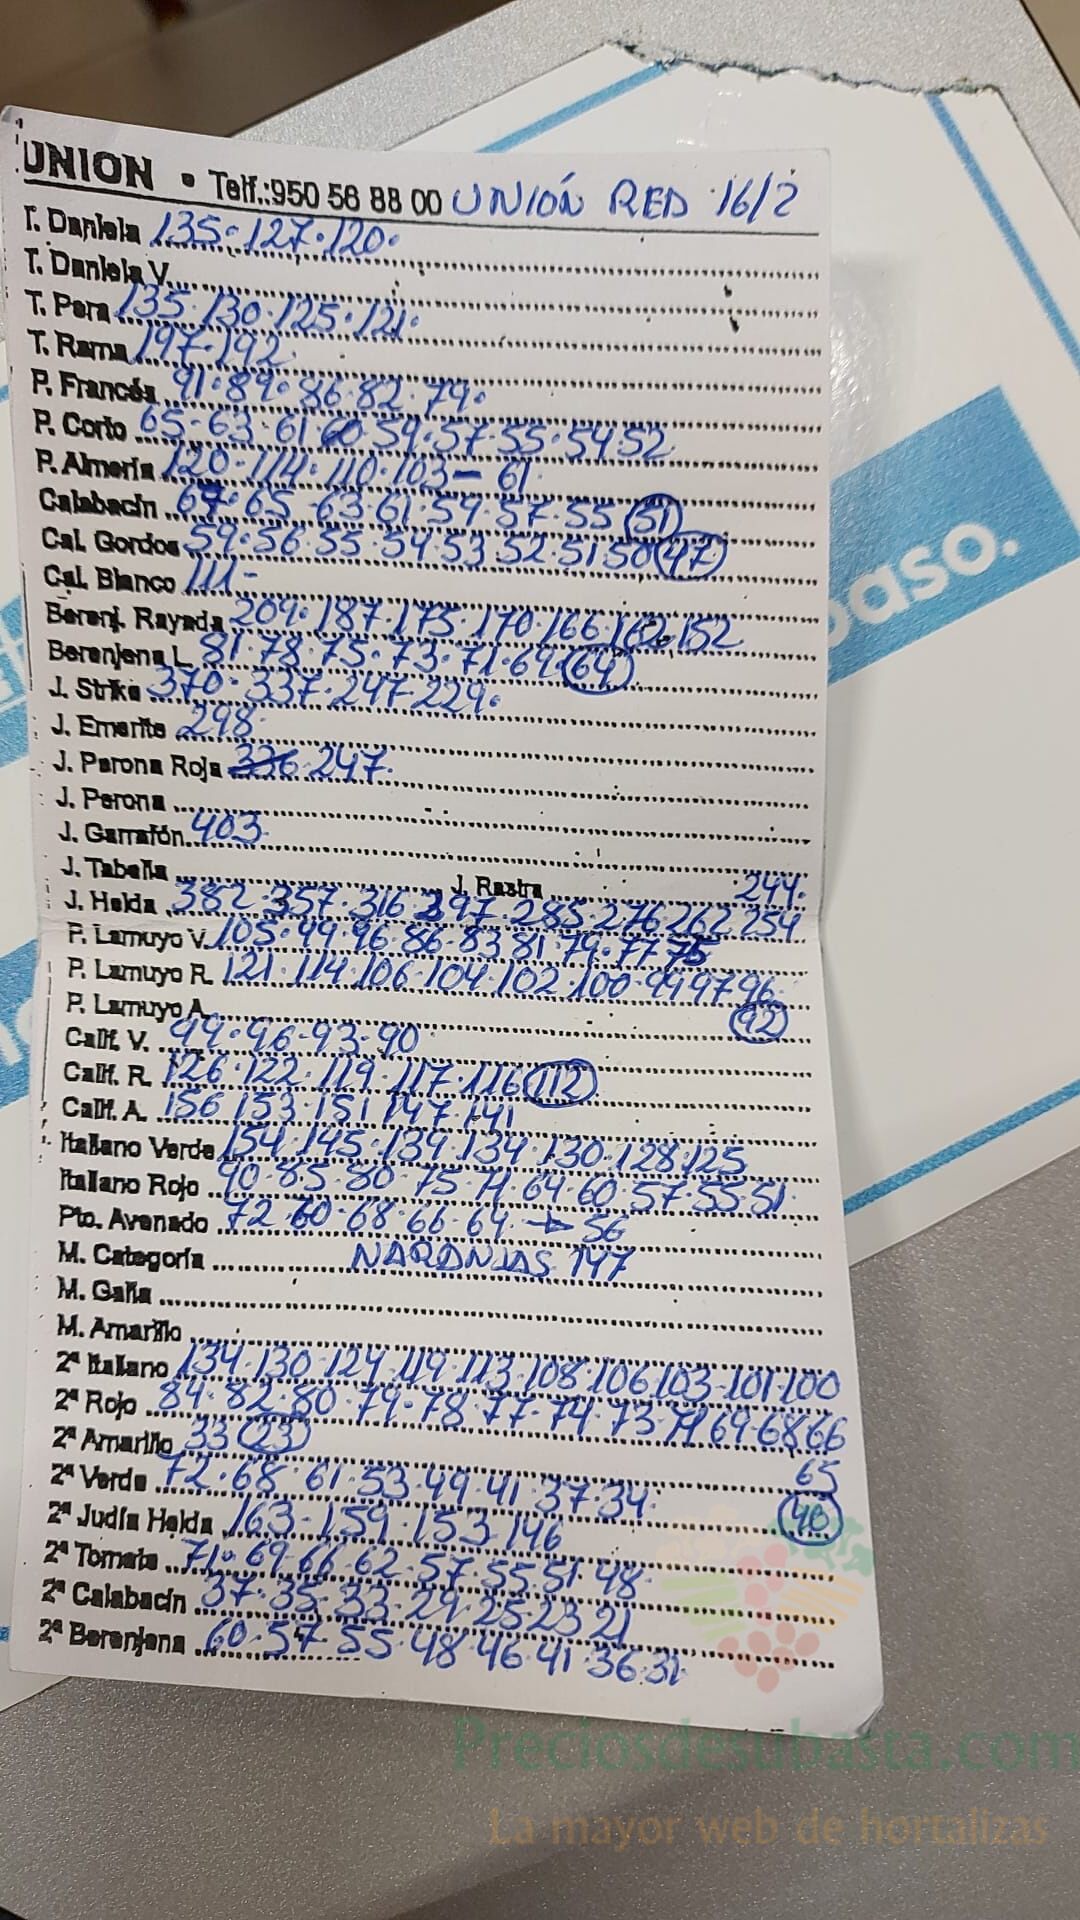 UNION • Telf.:950 56 88 00 UNIÓN RED 16/2
T. Daniela 135·127·120·
T. Daniela V.
T. Pera 135·130·125·121·
T. Rama 197·192
P. Francés 91·89·86·82·79·
P. Corto 65-63·61·60·59·57·55·54·52
P. Almería 120·114·110·103- 61·
Calabacín 67·65-63·61·59·57·55 (51)
Cal. Gordos 59·56·55·54·53·52·51·50 (47)
Cal. Blanco 111-
Berenj. Rayada 209·187·175·170·166·162·152
Berenjena L. 81·78·75·73·71·69 (64)
J. Strike 370·337·247·229·
J. Emerite 298·
J. Perona Roja 336·247·
J. Perona
J. Garrafón 403·
J. Tabella J. Rastra 244·
J. Helda 382·357·316·297·285·276·262·254
P. Lamuyo V. 105·99·96·86·83·81·79·77·75
P. Lamuyo R. 121·114·106·104·102·100·99·97·96·
P. Lamuyo A. (92)
Calif. V. 99·96-93·90
Calif. R. 126·122·119·117·116 (112)
Calif. A. 156 153·151 147·141
Italiano Verde 154·145·139·134·130·128·125
Italiano Rojo 90·85·80·75·71·64·60·57·55·51·
Pto. Asado 72·60·68·66·64 → 56
M. Categoría NARANJAS 147
M. Galia
M. Amarillo
2ª Italiano 134·130·124·119·113·108·106·103-101·100
2ª Rojo 84·82·80·79·78·77·74·73·71·69·68·66
2ª Amarillo 33 (23) 65
2ª Verde 72·68·61·53·49·41·37·34· (40)
2ª Judía Helda 163-159·153·146
2ª Tomate 71·69·66·62·57·55·51·48·
2ª Calabacín 37·35·33·29·25·23·21
2ª Berenjena 60·57·55·48·46·41·36·31·
paso.
Preciosdesubasta.com
La mayor web de hortalizas